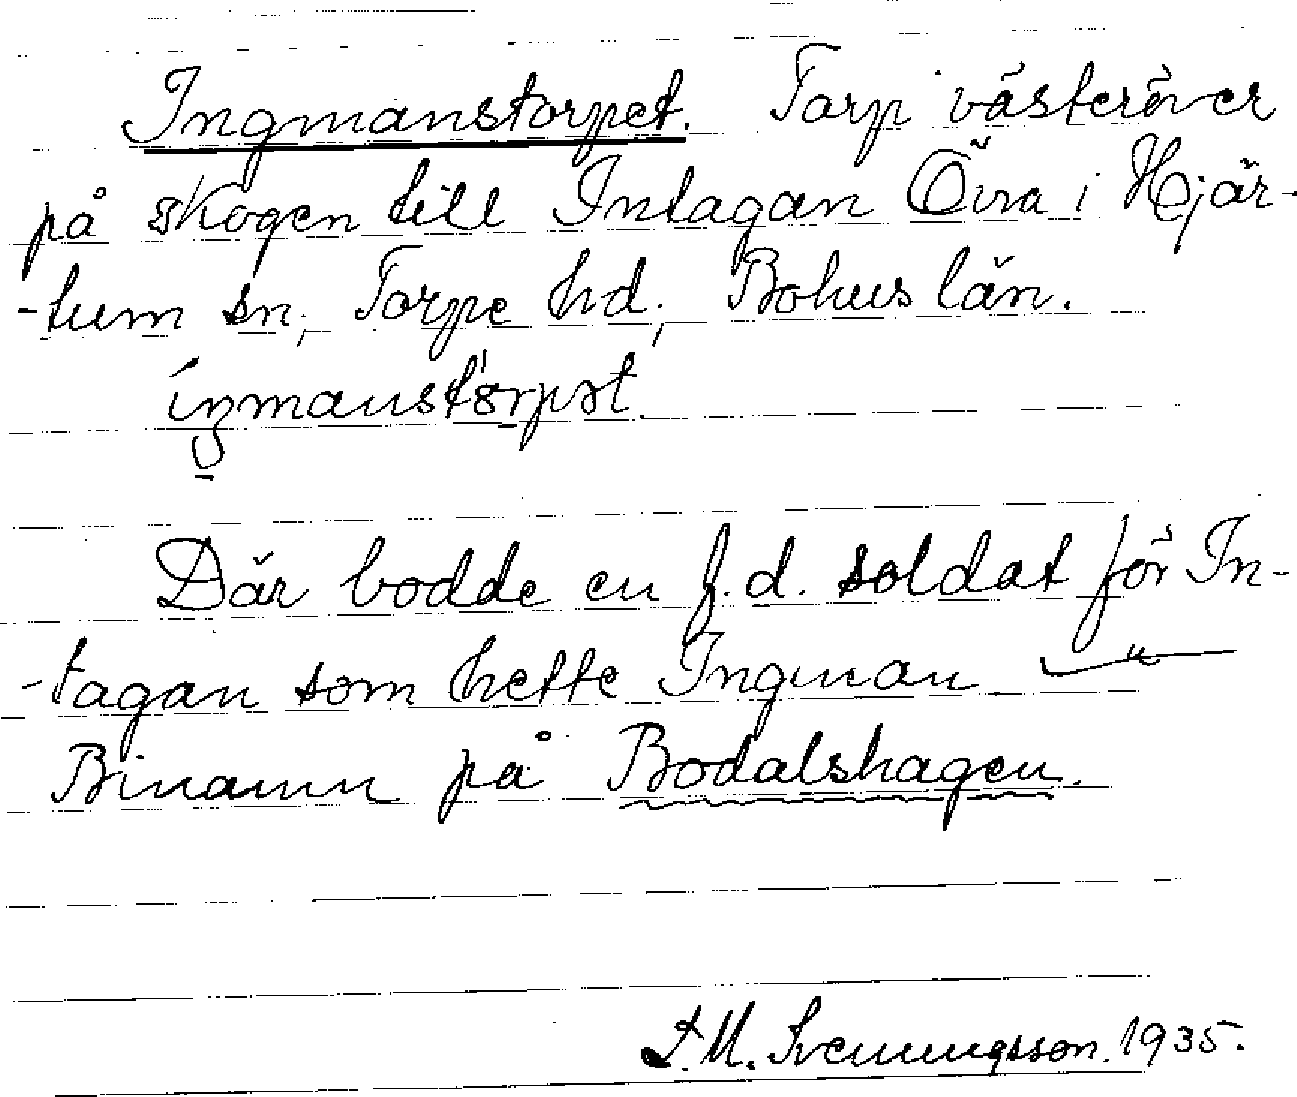 Ingmanstorpet. Torp västeröver
på skogen till Intagan Övra i Hjär-
-tum sn, Torpe hd, Bohus län.
Där bodde en f.d. soldat för In-
-tagan som hette Ingman
Binamn på Bodalshagen.
J. M. Svenungsson. 1935.